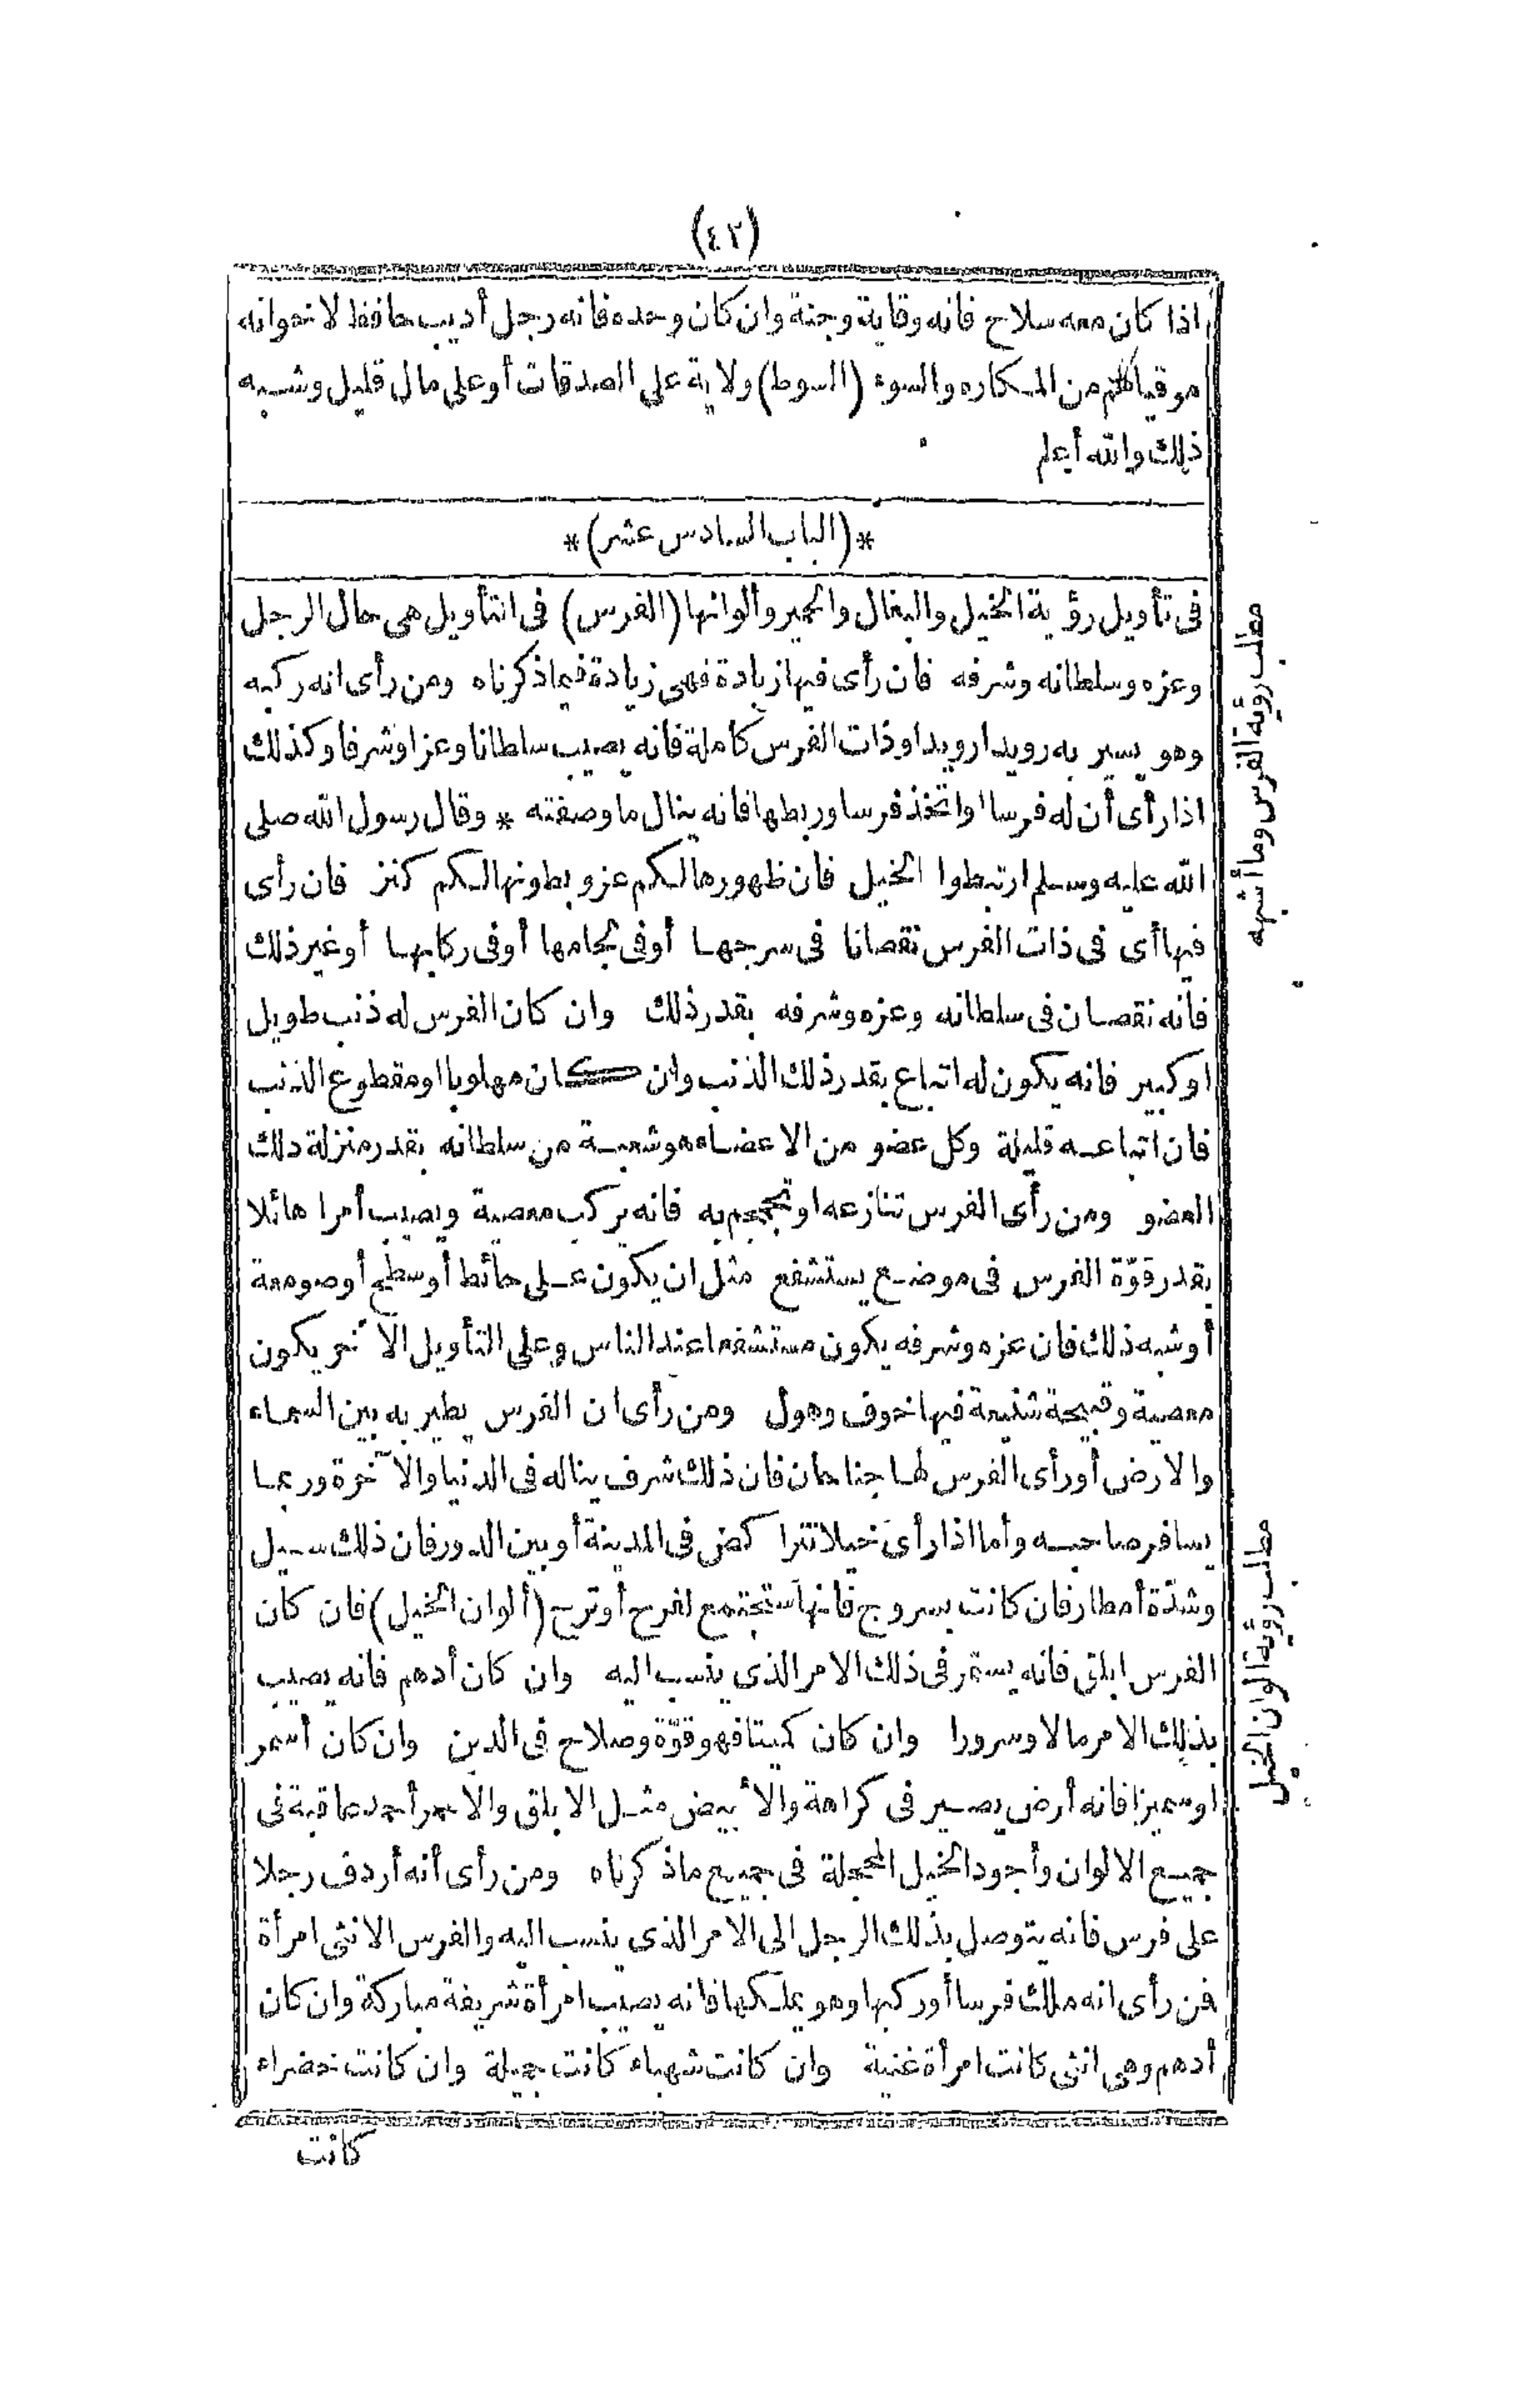 (٤٢)
اذا كان معه سلاح فانه وقاية وجنة وان كان وحده فانه رجل أديب حافظ لاخوانه
موقيا لهم من المكاره والسوء (السوط) ولاية على الصدقات أو على مال قليل وشبه
ذلك والله أعلم
*(الباب السادس عشر)*
فى تأويل رؤية الخيل والبغال والحمير وألوانها (الفرس) فى التأويل هى حال الرجل
وعزه وسلطانه وشرفه فان رأى فيها زيادة فهى زيادة فيما ذكرناه ومن رأى انه ركبه
وهو يسير به رويدا رويدا وذات الفرس كاملة فانه يصيب سلطانا وعزا وشرفا وكذلك
اذا رأى أن له فرسا او اتخذ فرسا وربطها فانه ينال ما وصفته * وقال رسول الله صلى
الله عليه وسلم ارتبطوا الخيل فان ظهورها لكم عز وبطونها لكم كنز فان رأى
فيها أى فى ذات الفرس نقصانا فى سرجها أو فى لجامها أو فى ركابها أو غير ذلك
فانه نقصان فى سلطانه وعزه وشرفه بقدر ذلك وان كان الفرس له ذنب طويل
او كبير فانه يكون له اتباع بقدر ذلك الذنب وان كان مهلوبا او مقطوع الذنب
فان اتباعه قليلة وكل عضو من الاعضاء هو شعبة من سلطانه بقدر منزلة دلك
العضو ومن رأى الفرس تنازعه او تجمح به فانه يركب معصية ويصيب أمرا هائلا
بقدر قوّة الفرس فى موضع يستشفع مثل ان يكون على حائط أو سطح أو صومعة
أو شبه ذلك فان عزه وشرفه يكون مستشفعا عند الناس وعلى التأويل الآخر يكون
معصية وقبيحة شنيعة فيها خوف وهول ومن رأى ان الفرس يطير به بين السماء
والارض أو رأى الفرس لها جناحان فان ذلك شرف يناله فى الدنيا والآخرة وربما
يسافر صاحبه وأما اذا رأى خيلا تتراكض فى المدينة أو بين الدور فان ذلك سيل
وشدّة أمطار فان كانت بسروج فانها ستجتمع لفرح أو ترح (ألوان الخيل) فان كان
الفرس ابلق فانه يستمر فى ذلك الامر الذى ينسب اليه وان كان أدهم فانه يصيب
بذلك الامر مالا وسرورا وان كان كميتا فهو قوّة وصلاح فى الدين وان كان أسمر
او سميزا فانه أرض يصير فى كراهة والأبيض مثل الابلق والاحمر أحمد عاقبة فى
جميع الالوان وأجود الخيل المحجلة فى جميع ما ذكرناه ومن رأى أنه أردف رجلا
على فرس فانه يتوصل بذلك الرجل الى الامر الذى ينسب اليه والفرس الانثى امرأة
فمن رأى انه ملك فرسا أو ركبها وهو يملكها فانه يصيب امرأة شريفة مباركة وان كان
أدهم وهى انثى كانت امرأة غنية وان كانت شهباء كانت جميلة وان كانت خضراء
كانت
مطلب رؤية الفرس وما أشبه
مطلب رؤية الوان الخيل